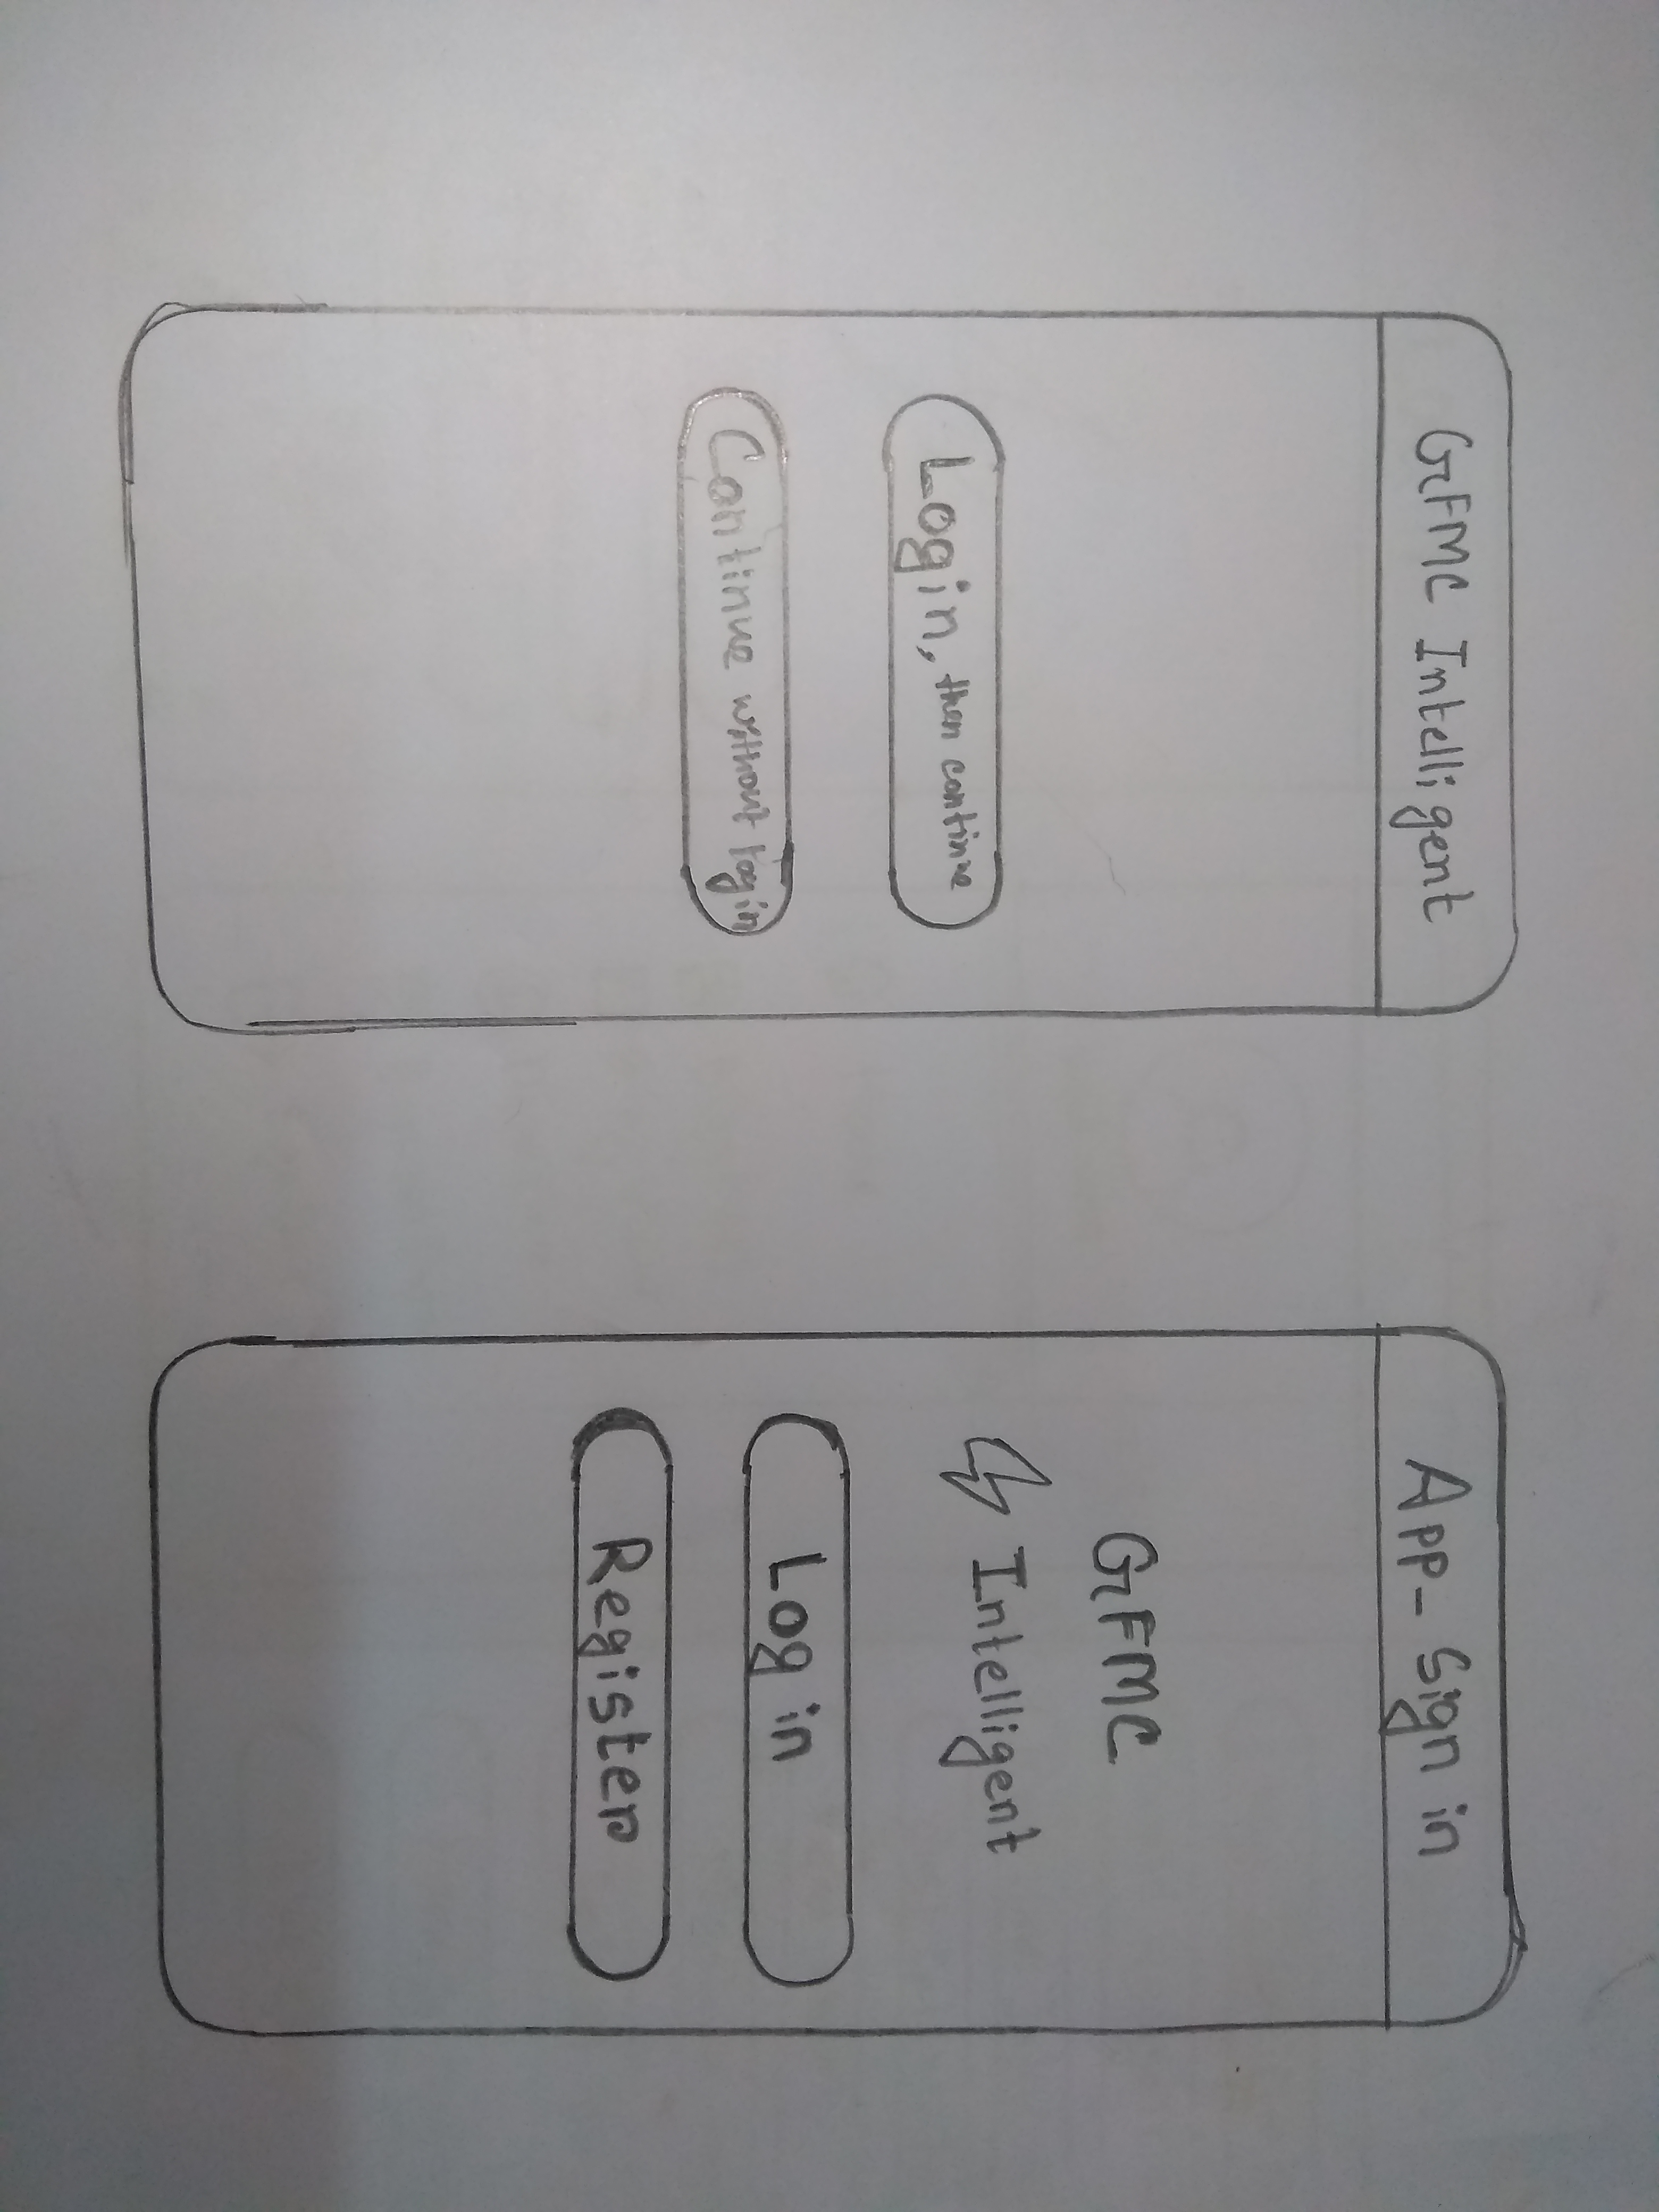 GFMC Intelligent
Login, then continue
Continue without login
App- Sign in
GFMC
Intelligent
Log in
Register